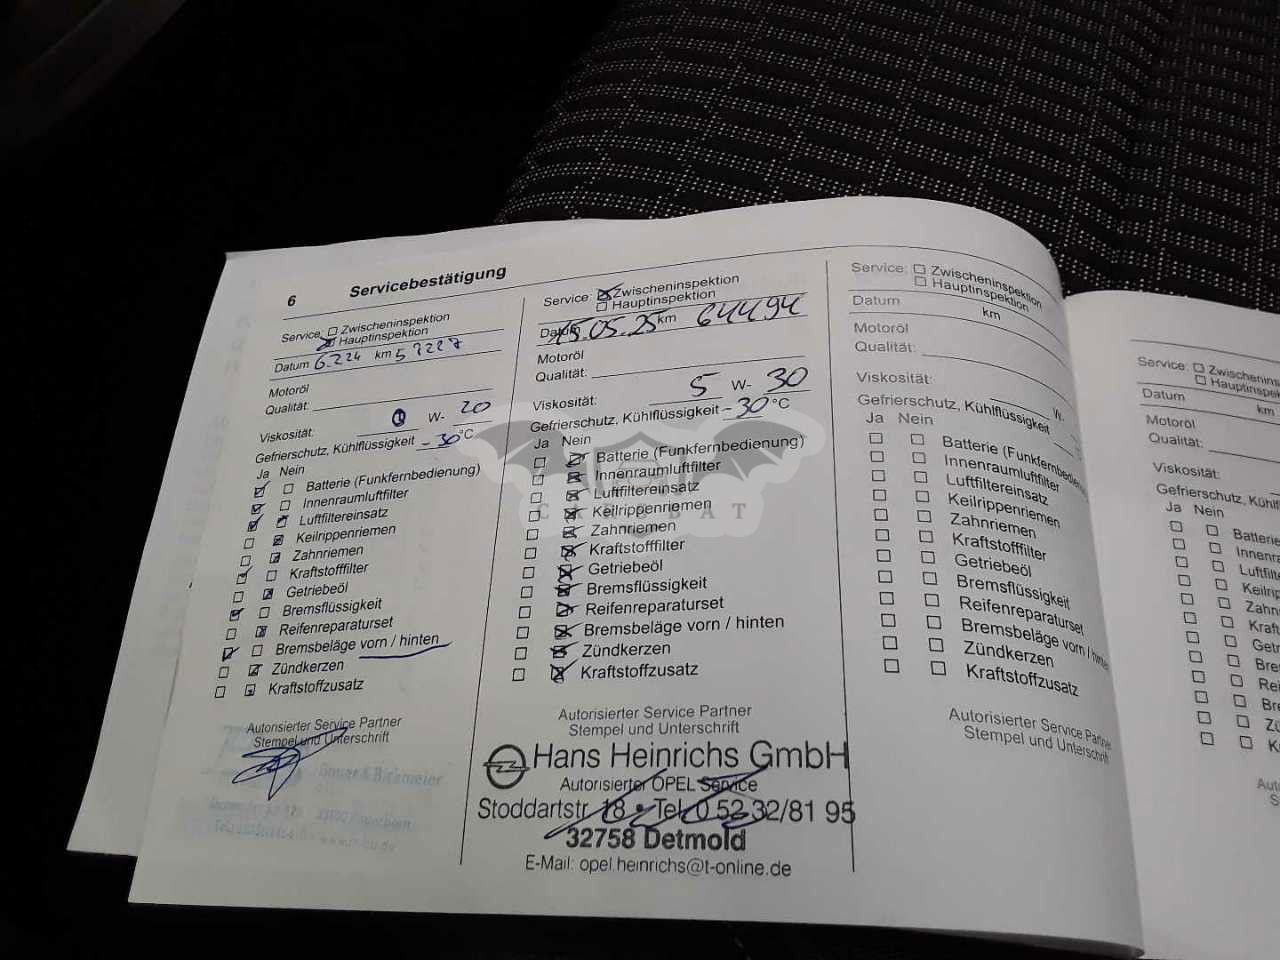 6 Servicebestätigung
Service: Zwischeninspektion
Hauptinspektion
Datum 6.224 km 57227
Motoröl
Qualität:
Viskosität: 0 W- 20
Gefrierschutz, Kühlflüssigkeit -30 °C
Ja Nein
Batterie (Funkfernbedienung)
Innenraumluftfilter
Luftfiltereinsatz
Keilrippenriemen
Zahnriemen
Kraftstofffilter
Getriebeöl
Bremsflüssigkeit
Reifenreparaturset
Bremsbeläge vorn / hinten
Zündkerzen
Kraftstoffzusatz
Autorisierter Service Partner
Stempel und Unterschrift
Service: Zwischeninspektion
Hauptinspektion
Datum 15.05.25 km 64494
Motoröl
Qualität:
Viskosität: 5 W- 30
Gefrierschutz, Kühlflüssigkeit -30 °C
Ja Nein
Batterie (Funkfernbedienung)
Innenraumluftfilter
Luftfiltereinsatz
Keilrippenriemen
Zahnriemen
Kraftstofffilter
Getriebeöl
Bremsflüssigkeit
Reifenreparaturset
Bremsbeläge vorn / hinten
Zündkerzen
Kraftstoffzusatz
Autorisierter Service Partner
Stempel und Unterschrift
Hans Heinrichs GmbH
Autorisierter OPEL Service
Stoddartstr. 18 • Tel. 0 52 32/81 95
32758 Detmold
E-Mail: opel.heinrichs@t-online.de
Service: Zwischeninspektion
Hauptinspektion
Datum km
Motoröl
Qualität:
Viskosität: W-
Gefrierschutz, Kühlflüssigkeit
Ja Nein
Batterie (Funkfernbedienung)
Innenraumluftfilter
Luftfiltereinsatz
Keilrippenriemen
Zahnriemen
Kraftstofffilter
Getriebeöl
Bremsflüssigkeit
Reifenreparaturset
Bremsbeläge vorn / hinten
Zündkerzen
Kraftstoffzusatz
Autorisierter Service Partner
Stempel und Unterschrift
Service: Zwischenins
Hauptinspe
Datum km
Motoröl
Qualität:
Viskosität:
Gefrierschutz, Kühlfl
Ja Nein
Batterie
Innenra
Luftfilte
Keilrip
Zahn
Kraft
Getr
Bre
Rei
Bre
Zü
K